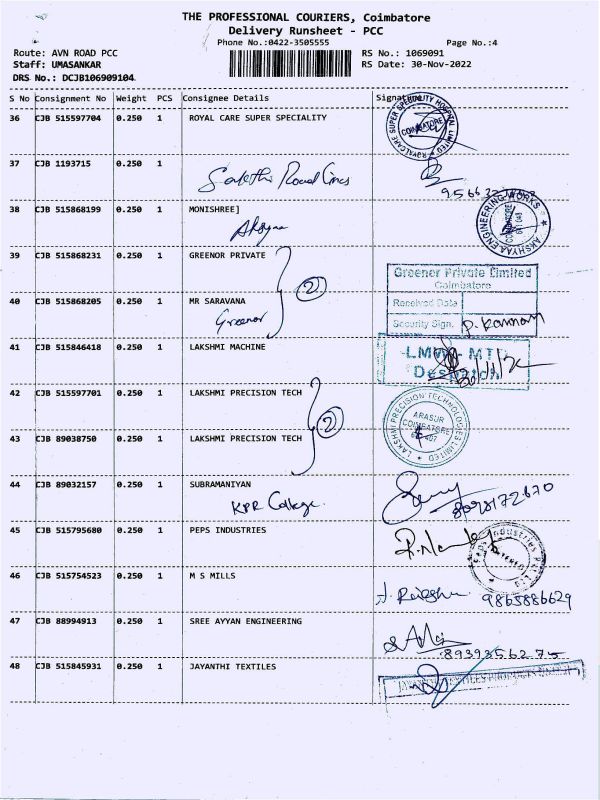 THE PROFESSIONAL COURIERS, Coimbatore
Delivery Runsheet - PCC
Phone No.:0422-3505555
Page No.:4
Route: AVN ROAD PCC
RS No.: 1069091
Staff: UMASANKAR
RS Date: 30-Nov-2022
DRS No.: DCJB106909104
S No Consignment No Weight PCS Consignee Details Signature
36 CJB 515597704 0.250 1 ROYAL CARE SUPER SPECIALITY
ROYALCARE SUPER SPECIALITY HOSPITAL LIMITED
COIMBATORE
37 CJB 1193715 0.250 1
38 CJB 515868199 0.250 1 MONISHREE]
AKSHYAA ENGINEERING WORKS
39 CJB 515868231 0.250 1 GREENOR PRIVATE
(2)
Greenor Private Limited
Coimbatore
Received Date
40 CJB 515868205 0.250 1 MR SARAVANA
Greenor
Security Sign. P. Kannan
41 CJB 515846418 0.250 1 LAKSHMI MACHINE
LMW - MTD
42 CJB 515597701 0.250 1 LAKSHMI PRECISION TECH
(2)
LAKSHMI PRECISION TECHNOLOGIES LIMITED
ARASUR
COIMBATORE
43 CJB 89038750 0.250 1 LAKSHMI PRECISION TECH
44 CJB 89032157 0.250 1 SUBRAMANIYAN
KPR College.
8098172670
45 CJB 515795680 0.250 1 PEPS INDUSTRIES
46 CJB 515754523 0.250 1 M S MILLS
9865886629
47 CJB 88994913 0.250 1 SREE AYYAN ENGINEERING
8939356275
48 CJB 515845931 0.250 1 JAYANTHI TEXTILES